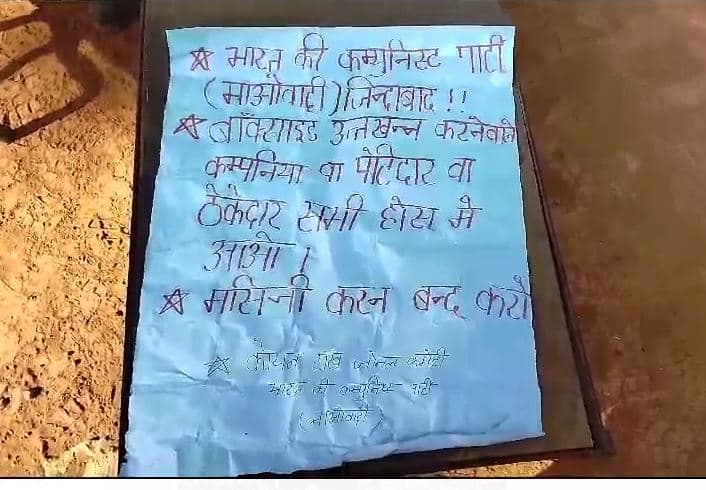 ☆ भारत की कम्युनिस्ट पार्टी
(माओवादी) जिन्दाबाद !!
☆ बॉक्साइड उत्तखन्न करनेवाले
कम्पनिया वा पेटिदार वा
ठेकेदार सभी होस मे
आओ ।
☆ मसिनी करन बन्द करो
☆ कोयल शंख जोनल कमेटी
भारत की कम्युनिस्ट पार्टी
(माओवादी)